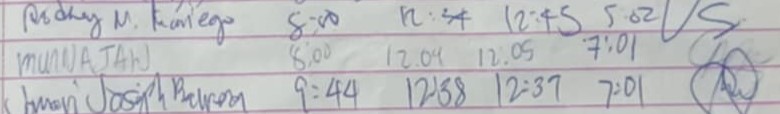 Rodney M. 8:00 12:34 12:45 5:02
MUNNAJAH 8:00 12.04 12.05 7:01
Joseph 9:44 12:38 12:37 7:01